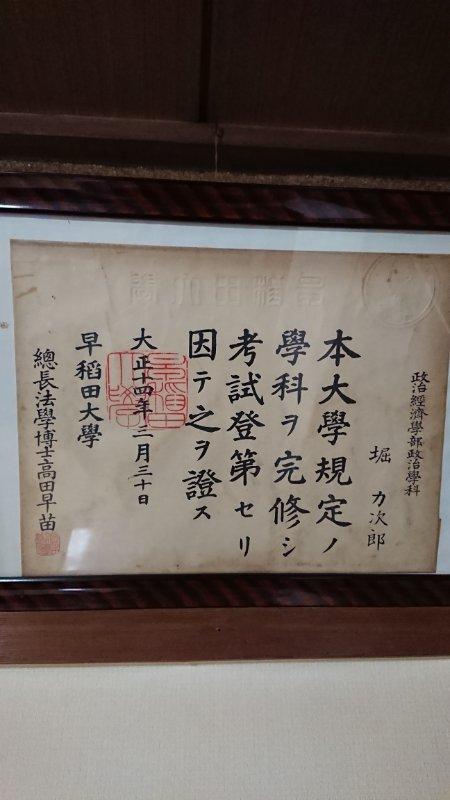 政治經濟學部政治學科
堀 力次郎
本大學規定ノ
學科ヲ完修シ
考試登第セリ
因テ之ヲ證ス
大正十四年三月三十日
早稻田大學
總長法學博士高田早苗